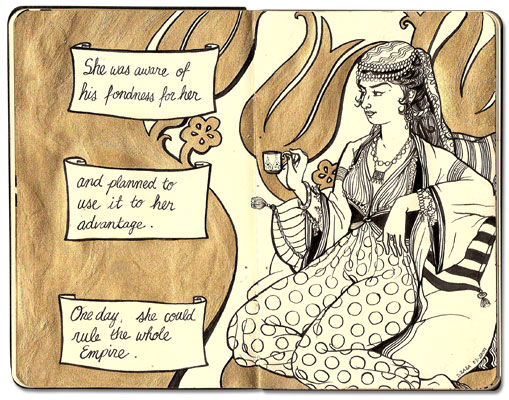 She was aware of
his fondness for her
and planned to
use it to her
advantage.
One day, she could
rule the whole
Empire.